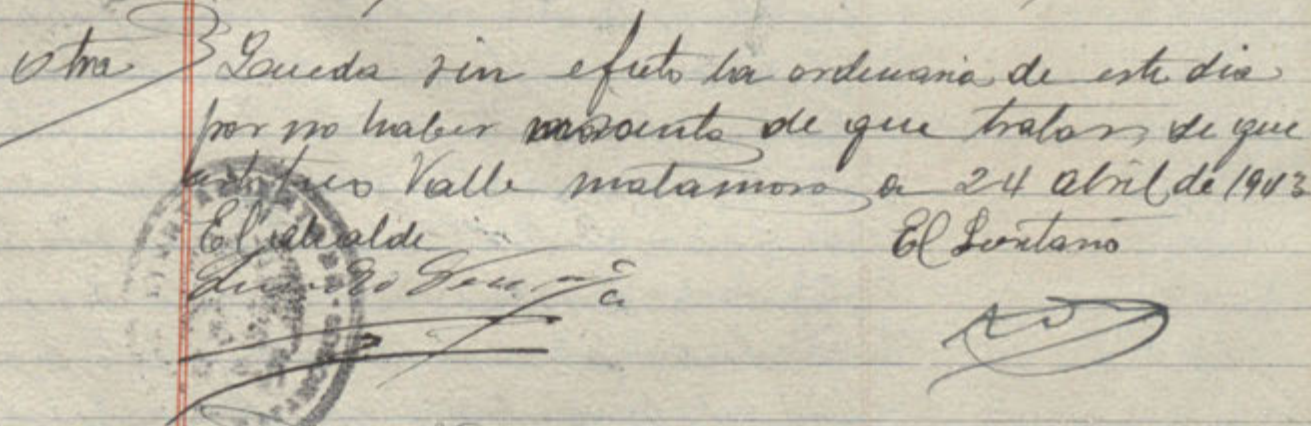 otra Queda sin efeto la ordenaria de este dia
por no haber asunto de que tratar, de que
Valle matamoros a 24 abril de 1903
El alcalde El Secretario